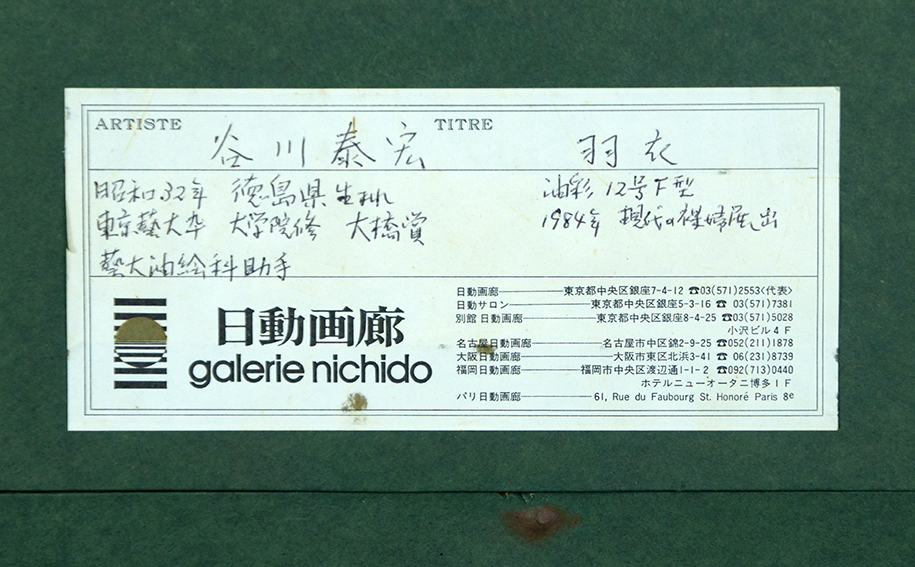 ARTISTE 谷川泰宏 TITRE 羽衣
昭和32年 徳島県生れ
東京藝大卒 大学院修 大橋賞
藝大油絵科助手
油彩 12号F型
1984年 現代の裸婦展出
日動画廊
galerie nichido
日動画廊――――東京都中央区銀座7-4-12 ☎03(571)2553〈代表〉
日動サロン――――東京都中央区銀座5-3-16 ☎ 03(571)7381
別館 日動画廊――――東京都中央区銀座8-4-25 ☎03(571)5028
小沢ビル4F
名古屋日動画廊――――名古屋市中区錦2-9-25 ☎052(211)1878
大阪日動画廊――――大阪市東区北浜3-41 ☎ 06(231)8739
福岡日動画廊――――福岡市中央区渡辺通1-1-2 ☎092(713)0440
ホテルニューオータニ博多1F
パリ日動画廊――――61, Rue du Faubourg St. Honoré Paris 8e